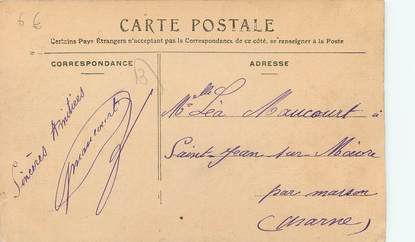 6 €
CARTE POSTALE
Certains Pays Étrangers n'acceptant pas la Correspondance de ce côté, se renseigner à la Poste
CORRESPONDANCE
B
ADRESSE
Sincères Amitiées
Maucourt
Melle Léa Maucourt à
Saint-Jean sur Moivre
par marson
(Marne)